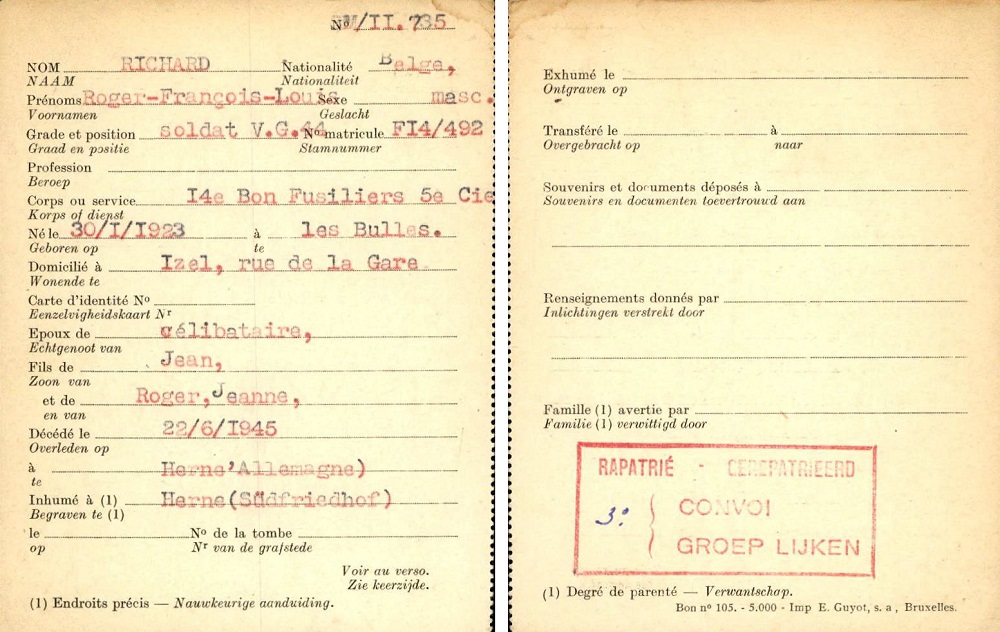 No M/II.735
NOM RICHARD Nationalité Belge,
NAAM Nationaliteit
Prénoms Roger-François-Louis Sexe masc.
Voornamen Geslacht
Grade et position soldat V.G.44 No matricule FI4/492
Graad en positie Stamnummer
Profession
Beroep
Corps ou service I4e Bon Fusiliers 5e Cie
Korps of dienst
Né le 30/I/I923 à les Bulles.
Geboren op te
Domicilié à Izel, rue de la Gare
Wonende te
Carte d'identité No
Eenzelvigheidskaart Nr
Epoux de célibataire,
Echtgenoot van
Fils de Jean,
Zoon van
et de Roger, Jeanne,
en van
Décédé le 22/6/I945
Overleden op
à Herne'Allemagne)
te
Inhumé à (1) Herne(Südfriedhof)
Begraven te (1)
le No de la tombe
op Nr van de grafstede
Voir au verso.
Zie keerzijde.
(1) Endroits précis — Nauwkeurige aanduiding.
Exhumé le
Ontgraven op
Transféré le à
Overgebracht op naar
Souvenirs et documents déposés à
Souvenirs en documenten toevertrouwd aan
Renseignements donnés par
Inlichtingen verstrekt door
Famille (1) avertie par
Familie (1) verwittigd door
RAPATRIÉ - GEREPATRIEERD
3° { CONVOI
GROEP LIJKEN
(1) Degré de parenté — Verwantschap.
Bon no 105. - 5.000 - Imp E. Guyot, s. a , Bruxelles.